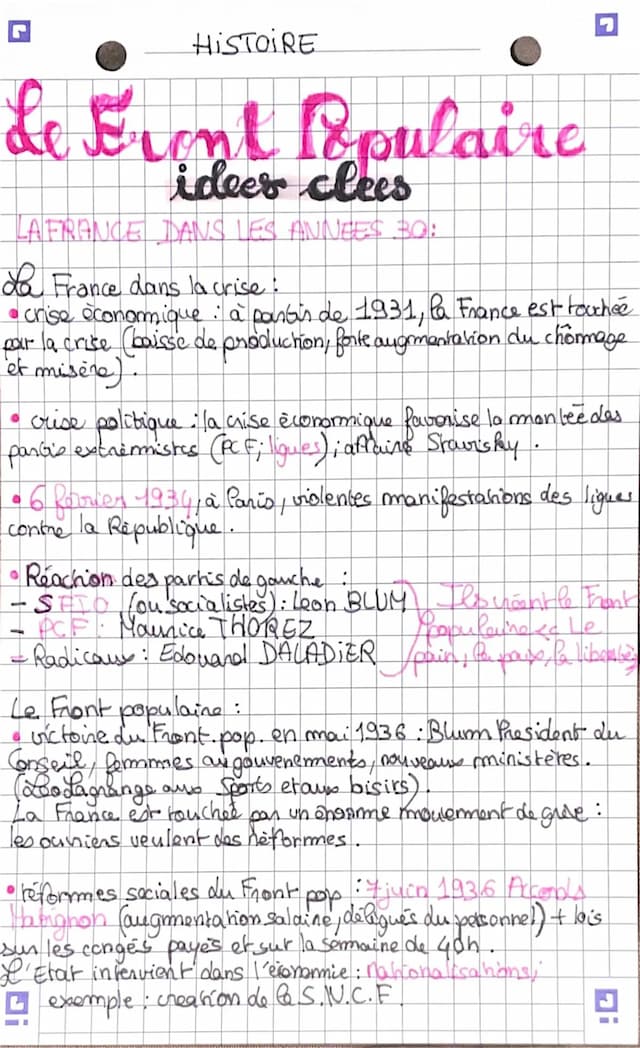 HISTOIRE
Le Front Populaire
idees clees
LA FRANCE DANS LES ANNEES 30:
La France dans la crise :
• crise économique : à partir de 1931, la France est touchée
par la crise (baisse de production, forte augmentation du chômage
et misère).
• crise politique : la crise économique favorise la montée des
partis extrêmistes (PCF; ligues); affaire Stavisky.
• 6 février 1934, à Paris, violentes manifestations des ligues
contre la République.
• Réaction des partis de gauche :
- SFIO (ou socialistes) : Leon BLUM
- PCF : Maurice THOREZ
- Radicaux : Edouard DALADIER
Ils créent le Front
populaire << Le
pain, la paix, la liberté>>
Le Front populaire :
• victoire du Front. pop. en mai 1936 : Blum President du
Conseil, femmes au gouvenements, nouveaux ministères.
(Léo Lagrange aux Sports et aux loisirs).
La France est touchée par un énorme mouvement de grève :
les ouvriers veulent des réformes.
• réformes sociales du Front pop : 7 juin 1936 Accords
Matignon (augmentation salaire, délégués du personnel) + lois
sur les congés payés et sur la semaine de 40h.
L'Etat intervient dans l'économie : nationalisations;
exemple : creation de la S.N.C.F.